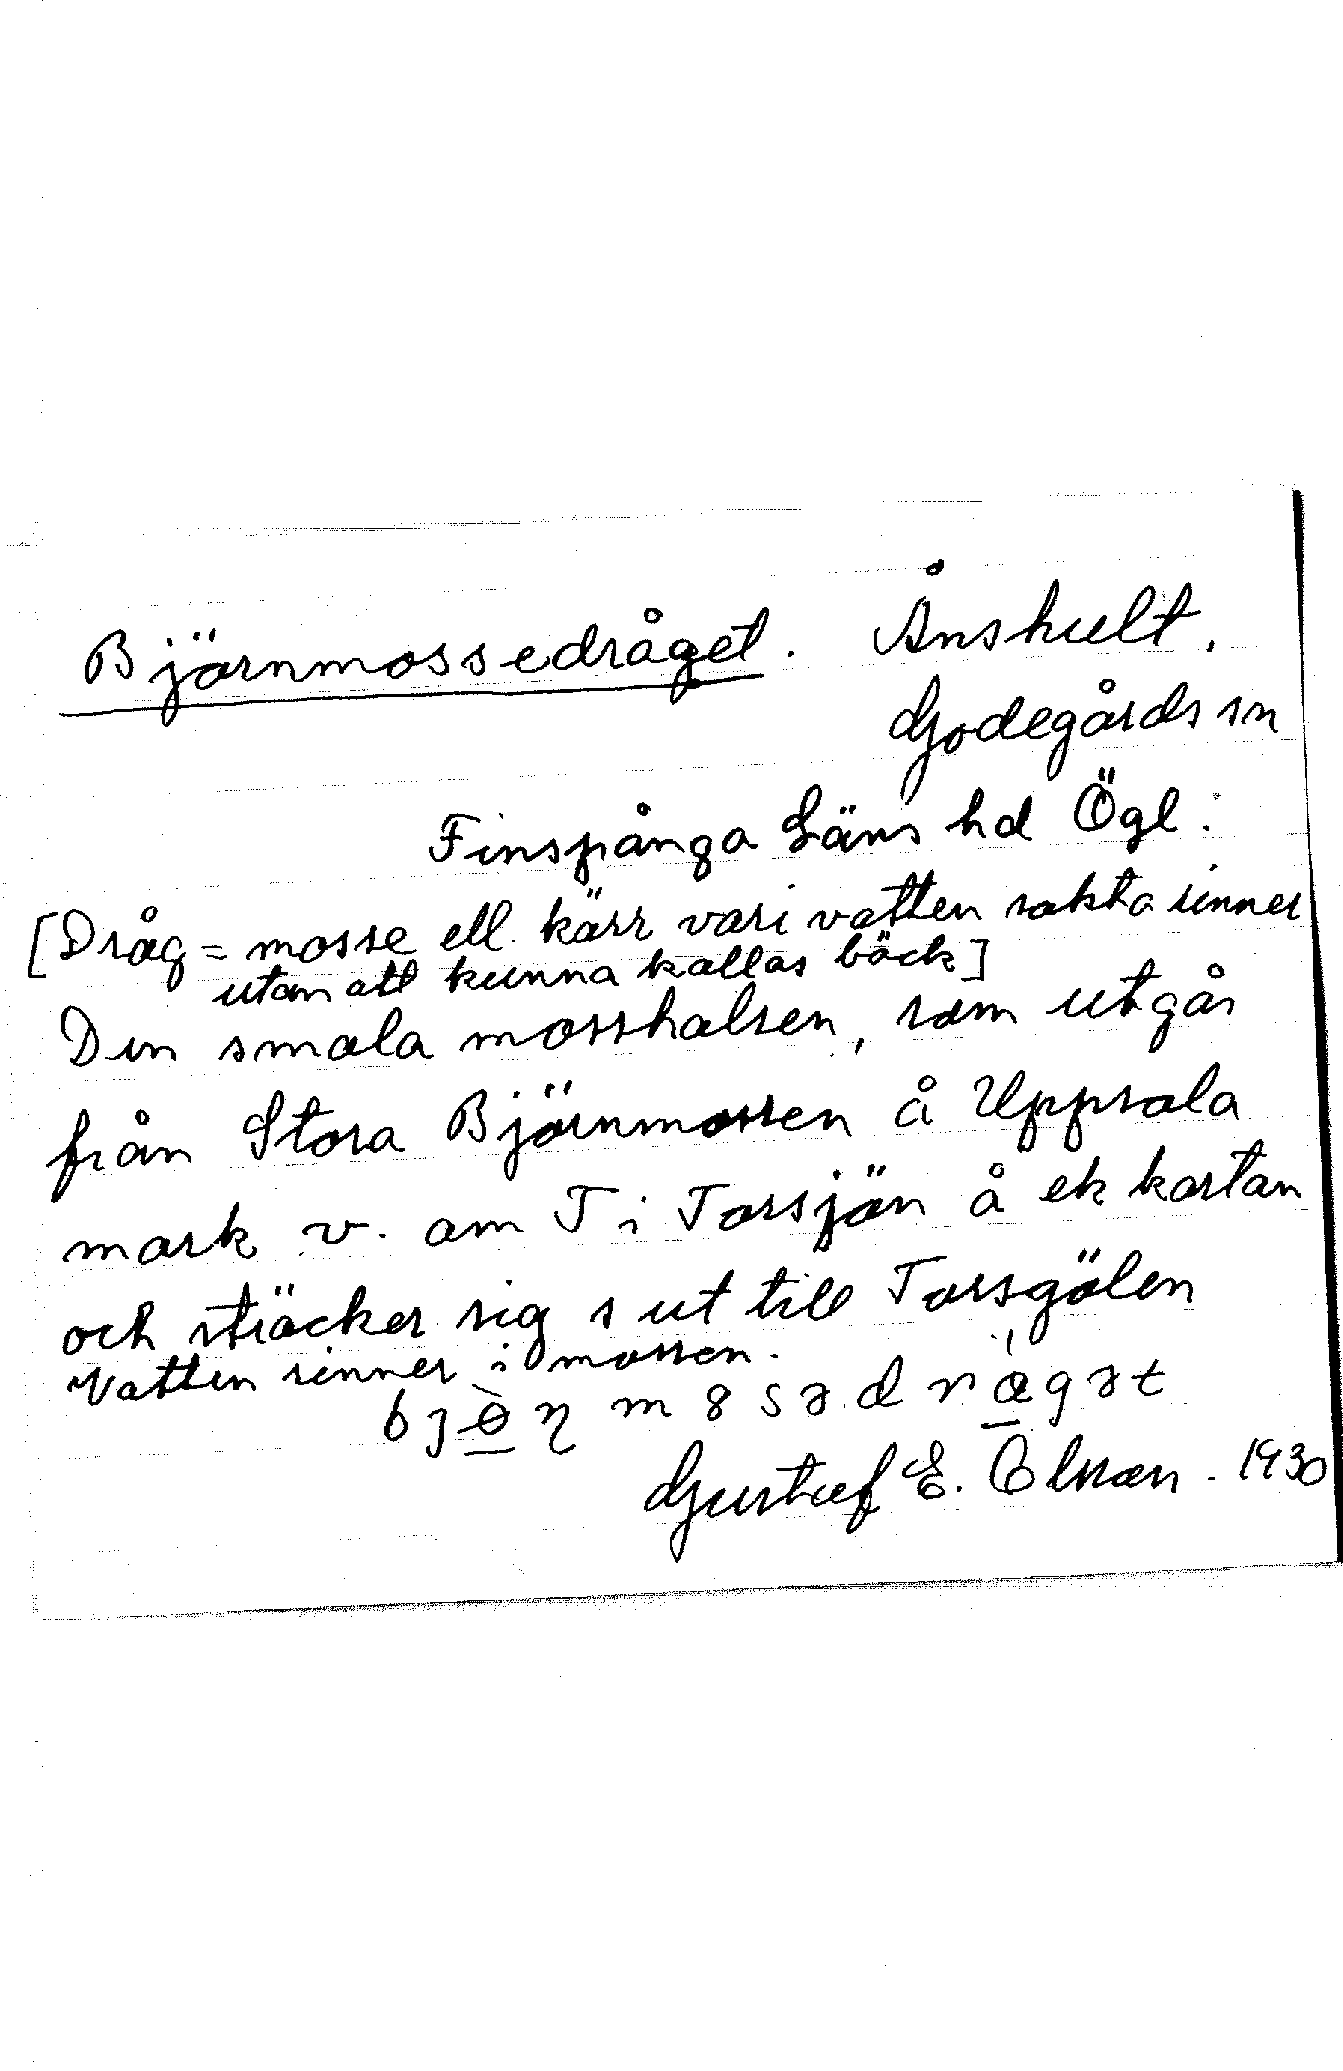 Björnmossedråget. Ånshult.
Godegårds sn
Finspånga Läns hd Ögl.
[Dråg = mosse ell. kärr vari vatten sakta rinner
utan att kunna kallas bäck]
Den smala mosshalsen, som utgår
från Stora Björnmossen å Uppsala
mark v. om T i Torsjön å ek kartan
och sträcker sig s ut till Torsgölen
Vatten rinner i mossen.
Gustaf E. Olsson. 1930